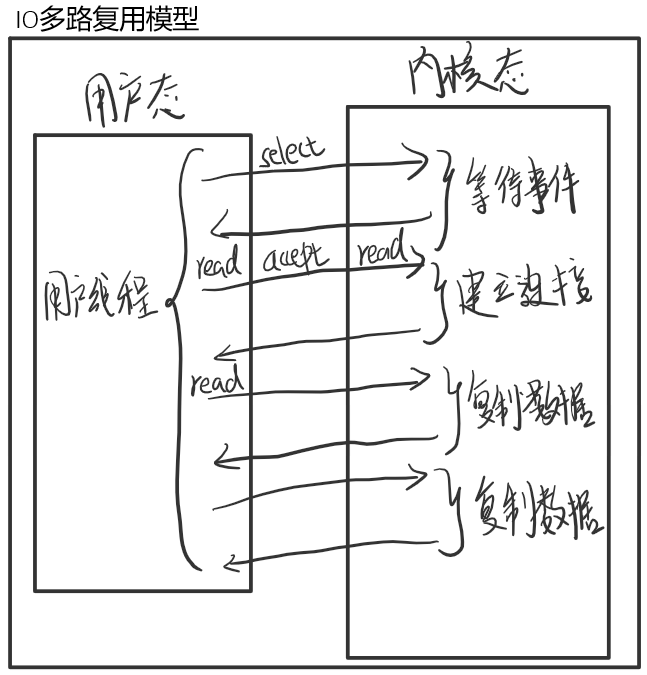 IO多路复用模型
用户态
内核态
select
等待事件
read accept read
建立连接
用户线程
read
复制数据
复制数据